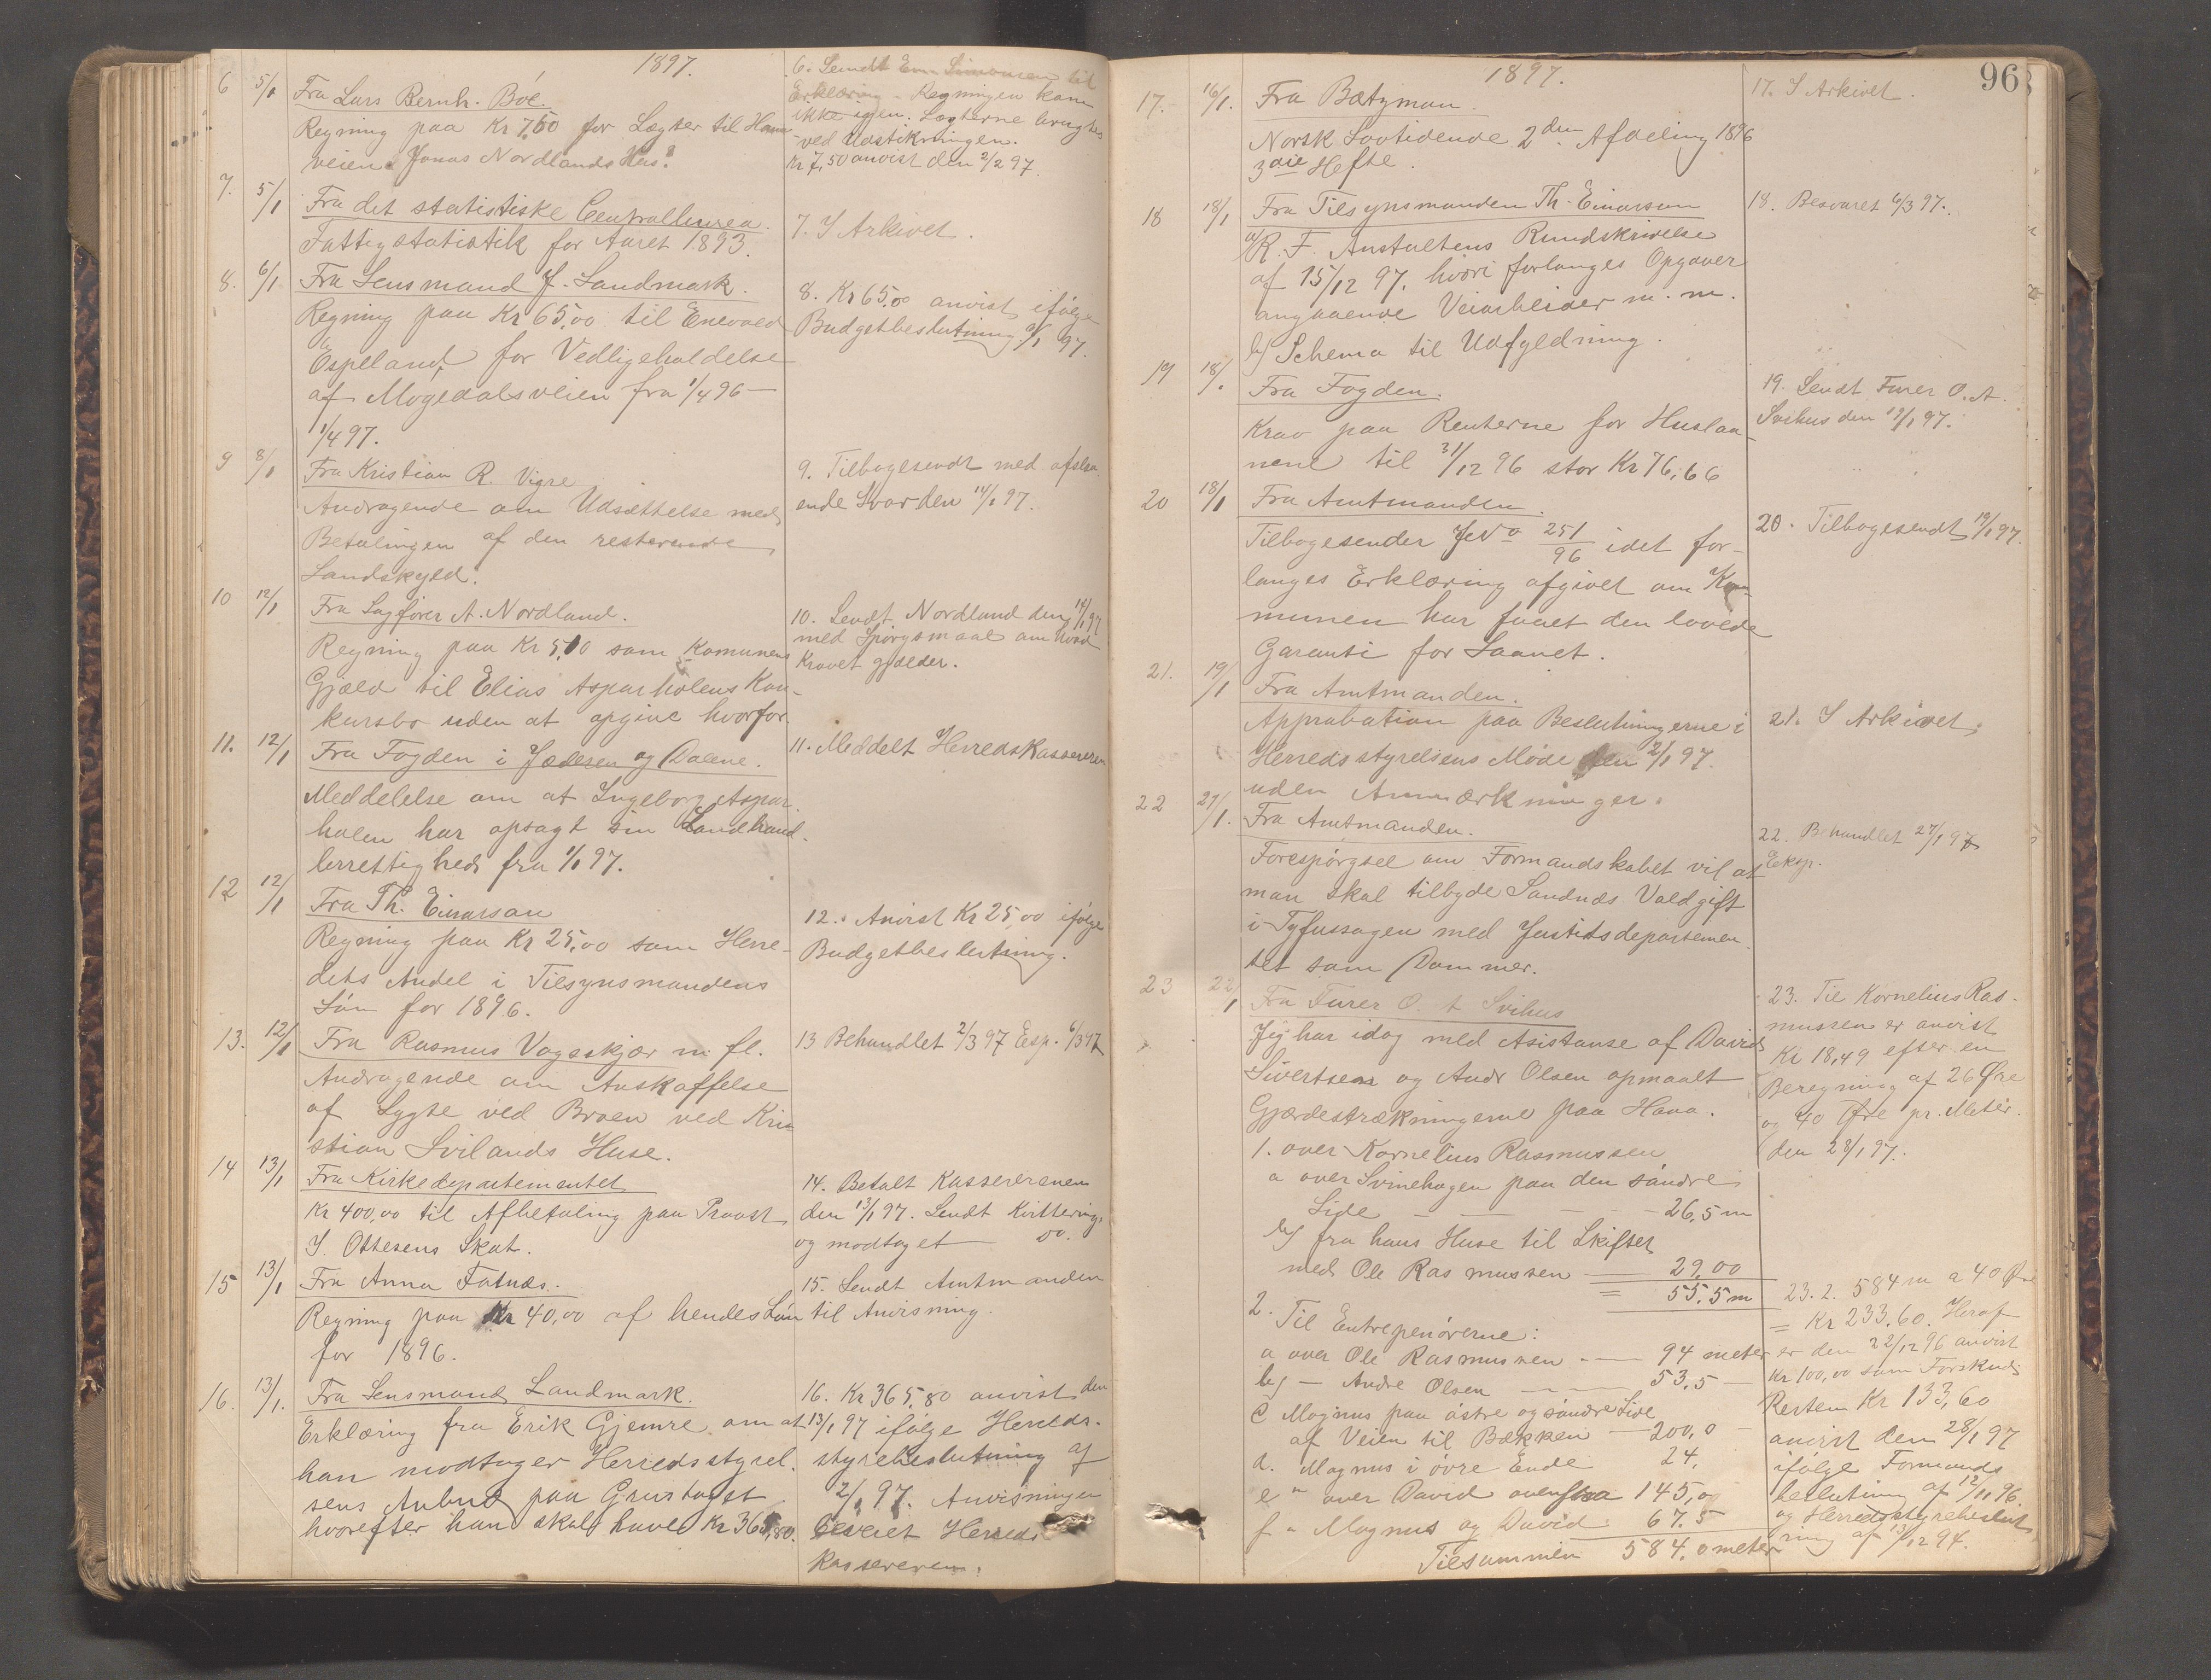 1897.
6 5/1 Fra Lars Bernh. Böe.
Regning paa Kr 7,50 for Lægter til Hana
veien Jonas Nordlands Hus.
7. 5/1 Fra det statistiske Centralbureau.
Fattigstatistik for Aaret 1893.
8. 6/1 Fra Lensmand J. Landmark.
Regning paa Kr 65,00 til Enevald
Ospeland for Vedligeholdelse
af Mogedalsveien fra 1/4 96 –
1/4 97.
9 8/1 Fra Kristian R. Vigre
Andragende om Udsættelse med
Betalingen af den resterende
Landskyld.
10 12/1 Fra Sagförer A. Nordland.
Regning paa Kr 5,10 som Komunens
Gjæld til Elias Asparholens Kon-
kursbo uden at opgive hvorfor.
11. 12/1 Fra Fogden i Jæderen og Dalene.
Meddelelse om at Ingeborg Aspar-
holen har opsagt sin Landhand-
lerrettighed fra 1/1 97.
12 12/1 Fra Th. Einarson
Regning paa Kr 25,00 som Herre-
dets Andel i Tilsynsmandens
Lön for 1896.
13. 12/1 Fra Rasmus Vagsskjær m. fl.
Andragende om Anskaffelse
af Lygte ved Broen ved Kri-
stian Svilands Huse.
14 13/1 Fra Kirkedepartementet
Kr 400,00 til Afbetaling paa Provst
J. Ottesens Skat.
15 13/1 Fra Anna Fatnæs.
Regning paa Kr 40,00 af hendes Lön
for 1896.
16. 13/1. Fra Lensmand Landmark.
Erklæring fra Erik Gjemre om at
han modtager Herredsstyrel-
sens Anbud paa Grustaget
hvorefter han skal have Kr 365,80.
6. Sendt Em. Simonsen til
Erklæring. Regningen kom
ikke igjen. Lægterne brugtes
ved Udstikningen.
Kr 7,50 anvist den 2/2 97.
7. I Arkivet.
8. Kr 65,00 anvist ifölge
Budgetbeslutning 2/1 97.
9. Tilbagesendt med afslaa
ende Svar den 14/1 97.
10. Sendt Nordland den 14/1 97
med Spörgsmaal om hvad
Kravet gjælder.
11. Meddelt Herredskassereren
12. Anvist Kr 25,00 ifölge
Budgetbeslutning.
13 Behandlet 2/3 97 Exp. 6/3 97
14. Betalt Kassereren
den 13/1 97. Sendt Kvittering
og modtaget Do.
15. Sendt Amtmanden
til Anvisning.
16. Kr 365,80 anvist den
13/1 97 ifölge Herreds-
styrebeslutning af
2/1 97. Anvisningen
leveret Herreds
kassereren.
96
1897.
17. 16/1. Fra Bætzman.
Norsk Lovtidende 2den Afdeling 1896
3die Hefte.
18 18/1 Fra Tilsynsmanden Th. Einarson
a/ R. F. Anstaltens Rundskrivelse
af 15/12 97, hvori forlanges Opgaver
angaaende Veiarbeider m. m.
b/ Schema til Udfyldning.
19 18/1 Fra Fogden.
Krav paa Renterne for Huslaa-
nene til 31/12 96 stor Kr 76,66
20 18/1 Fra Amtmanden.
Tilbagesender JNo 251/96 idet for-
langes Erklæring afgivet om Kom-
munen har faaet den lovede
Garanti for Laanet.
21. 19/1 Fra Amtmanden.
Approbation paa Beslutningerne i
Herredsstyrelsens Möde den 2/1 97.
uden Anmærkninger.
22 21/1. Fra Amtmanden.
Forespörgsel om Formandskabet vil at
man skal tilbyde Sandnæs Voldgift
i Tyfussagen med Justitsdepartemen-
tet som Dommer.
23 22/1 Fra Furer O. A Svihus
Jeg har idag med Asistanse af David
Sivertsen og Andr Olsen opmaalt
Gjærdestrækningerne paa Hana.
1. over Kornelius Rasmussen
a over Svinehagen paa den söndre
Side – – – – 26,5 m
b/ fra hans Huse til Skiftet
med Ole Rasmussen – 29,00
= 55,5 m
2. Til Entrepenörerne:
a over Ole Rasmussen – 94 meter
b/ – Andre Olsen – – 53,5 –
c Magnus paa östre og söndre Side
af Veien til Bækken – 200,0 –
d. Magnus i övre Ende 24,
e " over David ovenfra 145,0
f " Magnus og David 67,5
Tilsammen 584,0 meter
17. I Arkivet.
18. Besvaret 6/3 97.
19. Sendt Furer O. A.
Svihus den 19/1 97.
20. Tilbagesendt 19/1 97.
21. I Arkivet.
22. Behandlet 27/1 97
Eksp.
23. Til Kornelius Ras-
mussen er anvist
Kr 18,49 efter en
Beregning af 26 Öre
og 40 Öre pr. Meter.
den 28/1 97.
23.2. 584 m a 40 Öre
= Kr 233,60. Heraf
er den 22/12 96 anvist
Kr 100,00 som Forskud
Resten Kr 133,60
anvist den 28/1 97
ifölge Formands
beslutning af 12/11 96.
og Herredsstyrebeslut
ning af 13/12 94.